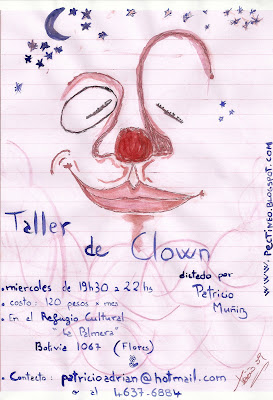 Taller
de Clown
dictado por
Patricio
Muñiz
• miercoles de 19h30 a 22 hs
• costo: 120 pesos x mes
• En el Refugio Cultural
"La Palmera"
Bolivia 1067 (Flores)
• Contacto: patricioadrian@hotmail.com
o al 4637-6984
www.PECTINTO.BLOGSPOT.COM